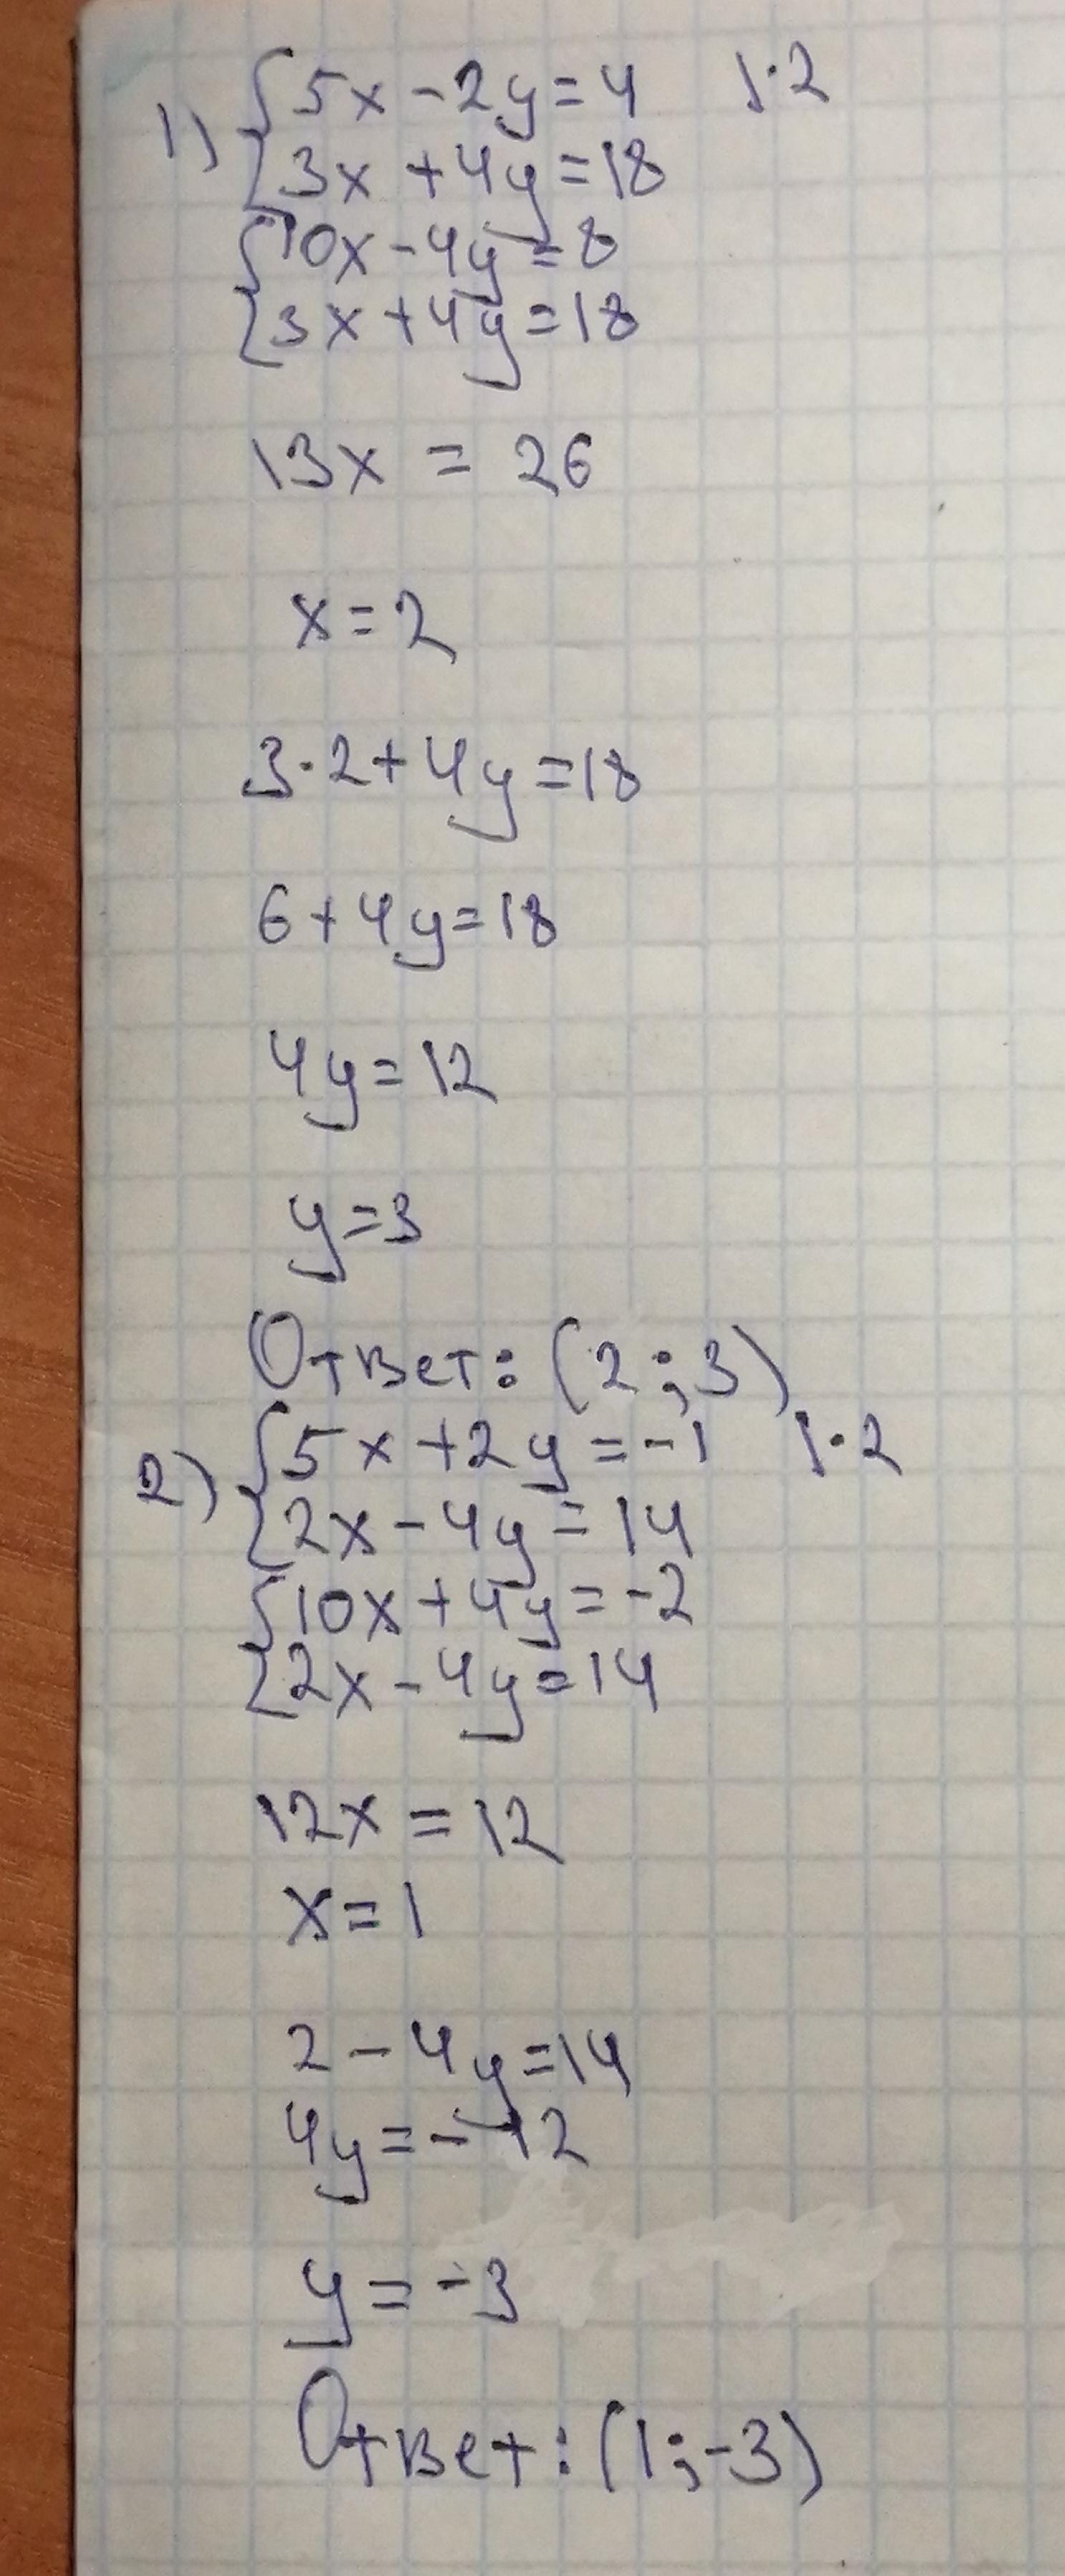 1) {5x-2y=4 |·2
{3x+4y=18
{10x-4y=8
{3x+4y=18
13x = 26
x=2
3·2+4y=18
6+4y=18
4y=12
y=3
Ответ: (2;3)
2) {5x+2y=-1 |·2
{2x-4y=14
{10x+4y=-2
{2x-4y=14
12x=12
x=1
2-4y=14
4y=-12
y=-3
Ответ: (1;-3)